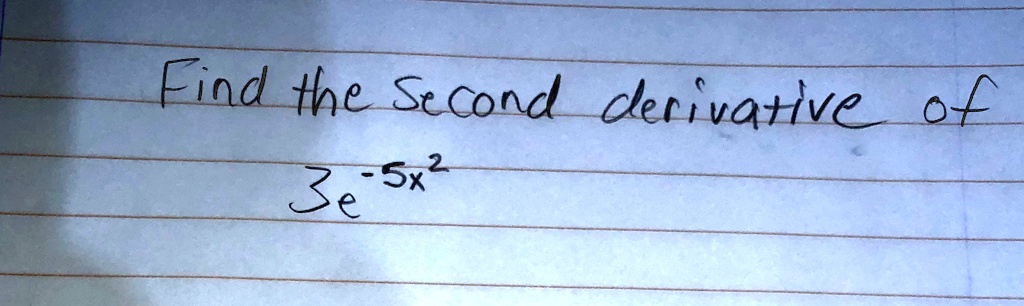 Find the Second derivative of
3e^{-5x^2}